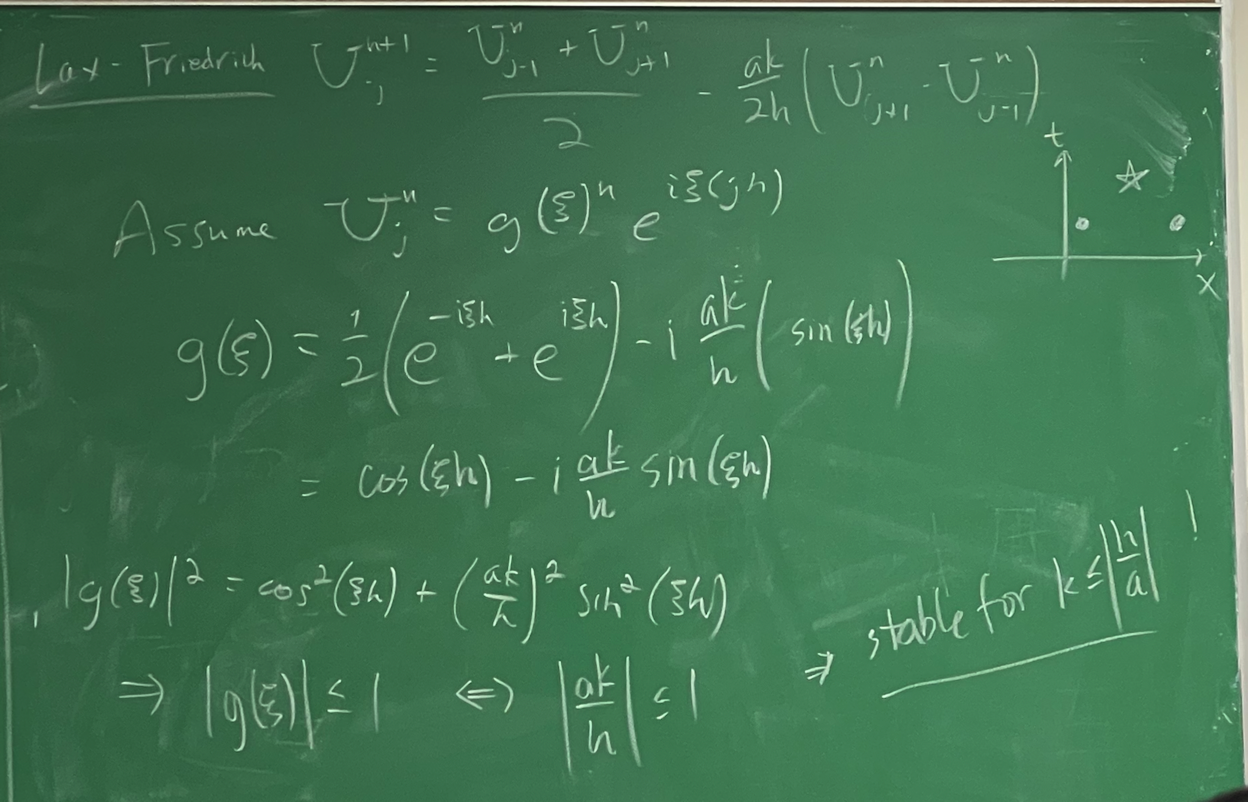 Lax-Friedrich U_j^{n+1} = \frac{U_{j-1}^n + U_{j+1}^n}{2} - \frac{ak}{2h} ( U_{j+1}^n - U_{j-1}^n )
t
Assume U_j^n = g(ξ)^n e^{iξ(jh)}
x
g(ξ) = \frac{1}{2} ( e^{-iξh} + e^{iξh} ) - i \frac{ak}{h} ( sin(ξh) )
= cos(ξh) - i \frac{ak}{h} sin(ξh)
|g(ξ)|^2 = cos^2(ξh) + (\frac{ak}{h})^2 sin^2(ξh)
⇒ |g(ξ)| ≤ 1 ⇔ |\frac{ak}{h}| ≤ 1 ⇒ stable for k ≤ |\frac{h}{a}| !